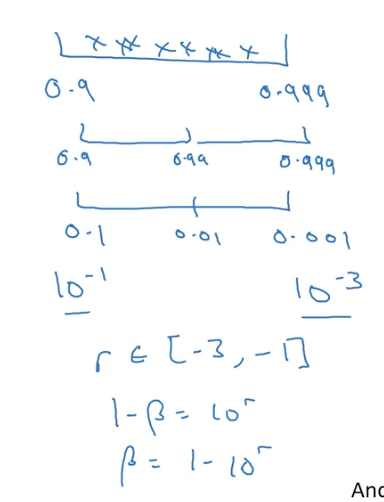 0.9 0.999
0.9 0.99 0.999
0.1 0.01 0.001
10⁻¹ 10⁻³
r ∈ [-3, -1]
1-β = 10ʳ
β = 1-10ʳ
And